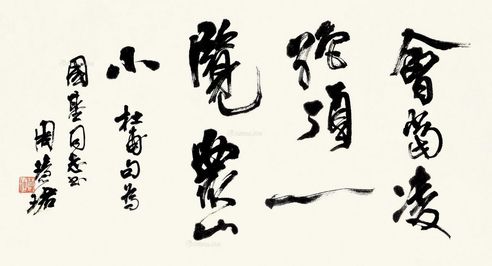 會當凌
絕頂一
覽眾山
小
杜甫句為
國同志書
周慧珺